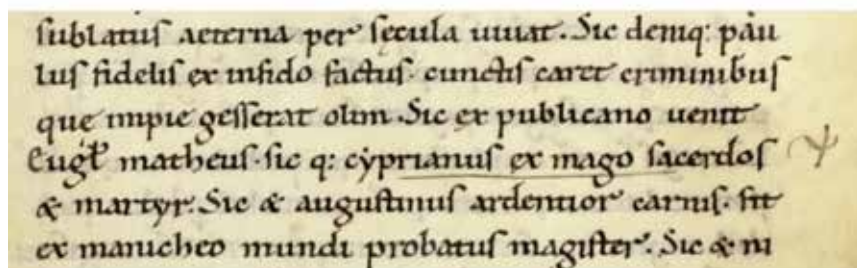 sublatus aeterna per sęcula uiuat. Sic deniq: pau
lus fidelis ex infido factus. cunctis caret criminibus
quę impie gesserat olim. Sic ex publicano uenit
Eugłt matheus. sic q: cẏprianus ex mago sacerdos
& martyr. Sic & augustinus ardentior carnis. fit
ex manicheo mundi probatus magister. Sic & ni